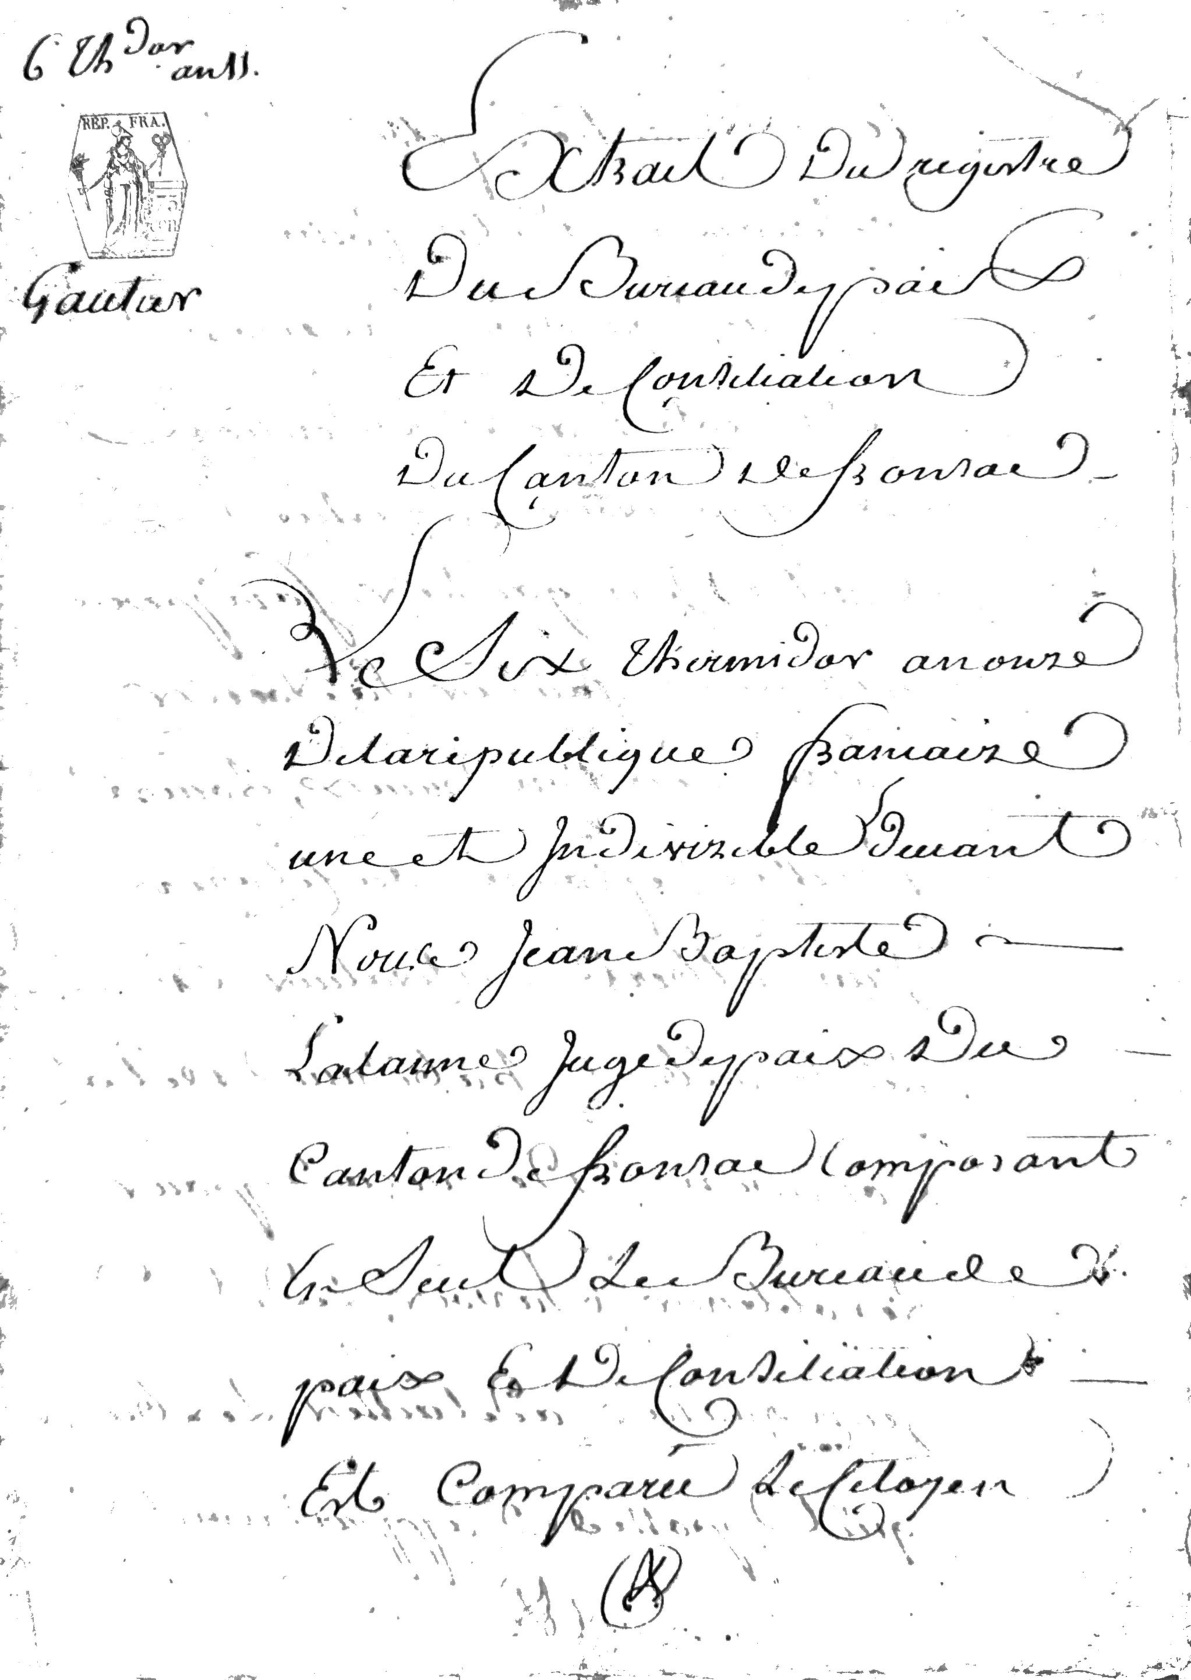 6 Thdor
an 11.
REP. FRA.
Gautier
Extrait Du registre
Du Bureau de paix
Et De Consiliation
Du Canton de fronsac
Le Six thermidor an onze
De la republique francaize
une et Indivizible devant
Nous Jean Baptiste
Lalanne Juge de paix Du
Canton de fronsac Composant
Seul Le Bureau de
paix Et De Consiliation
Est Comparu Le Citoyen